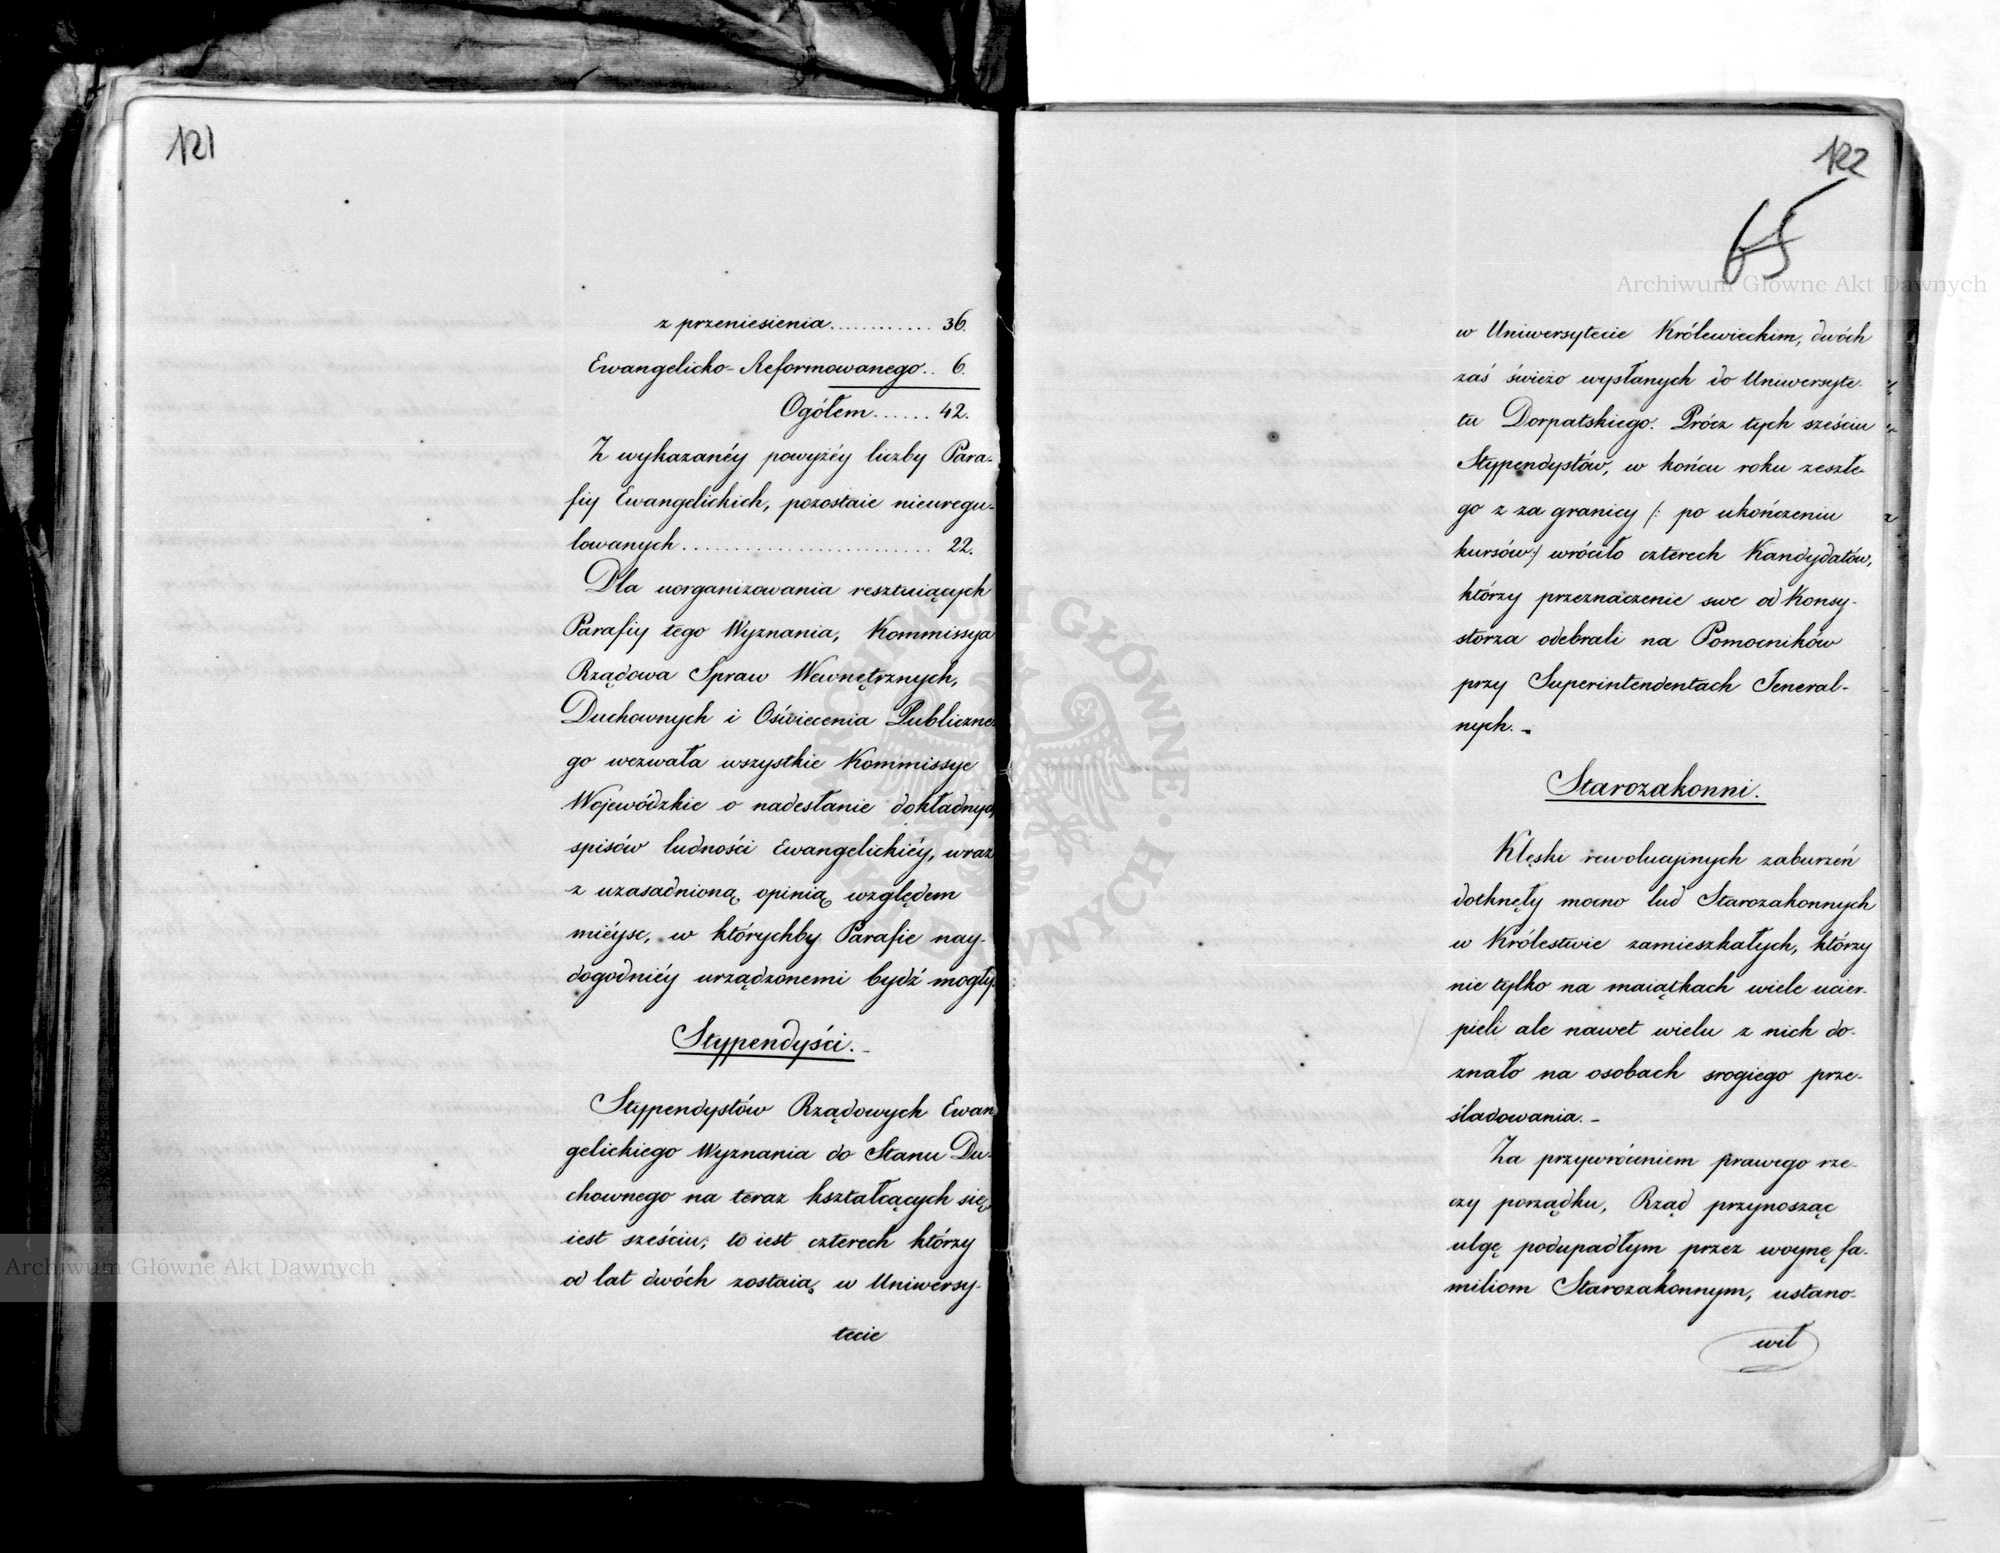 121
z przeniesienia............ 36.
Ewangelicko-Reformowanego.. 6.
Ogółem...... 42.
Z wykazanéy powyżéy liczby Para-
fiy Ewangelickich, pozostaie nieuregu-
lowanych........................ 22.
Dla uorganizowania resztuiących
Parafiy tego Wyznania, Kommissya
Rządowa Spraw Wewnętrznych,
Duchownych i Oświecenia Publiczne-
go wezwała wszystkie Kommissye
Wojewódzkie o nadesłanie dokładnych
spisów ludności Ewangelickiéy, wraz
z uzasadnioną opinią względem
mieysc, w którychby Parafie nay-
dogodniéy urządzonemi bydź mogły.
Stypendyści.-
Stypendystów Rządowych Ewan-
gelickiego Wyznania do Stanu Du-
chownego na teraz kształcących się,
iest sześciu; to iest czterech którzy
od lat dwóch zostaią w Uniwersy-
tecie
122
65
w Uniwersytecie Królewieckim, dwóch
zaś świeżo wysłanych do Uniwersyte-
tu Dorpatskiego. Prócz tych sześciu
Stypendystów, w końcu roku zeszłe-
go z za granicy /: po ukończeniu
kursów:/ wróciło czterech Kandydatów,
którzy przeznaczenie swe od Konsy-
storza odebrali na Pomocników
przy Superintendentach Jeneral-
nych.-
Starozakonni.
Klęski rewolucyjnych zaburzeń
dotknęły mocno lud Starozakonnych
w Królestwie zamieszkałych, którzy
nie tylko na maiątkach wiele ucier-
pieli ale nawet wielu z nich do-
znało na osobach srogiego prze-
śladowania.-
Za przywróceniem prawego rze-
czy porządku, Rząd przynosząc
ulgę podupadłym przez woynę fa-
miliom Starozakonnym, ustano-
wił
Archiwum Główne Akt Dawnych
Archiwum Główne Akt Dawnych
ARCHIWUM GŁÓWNE AKT DAWNYCH